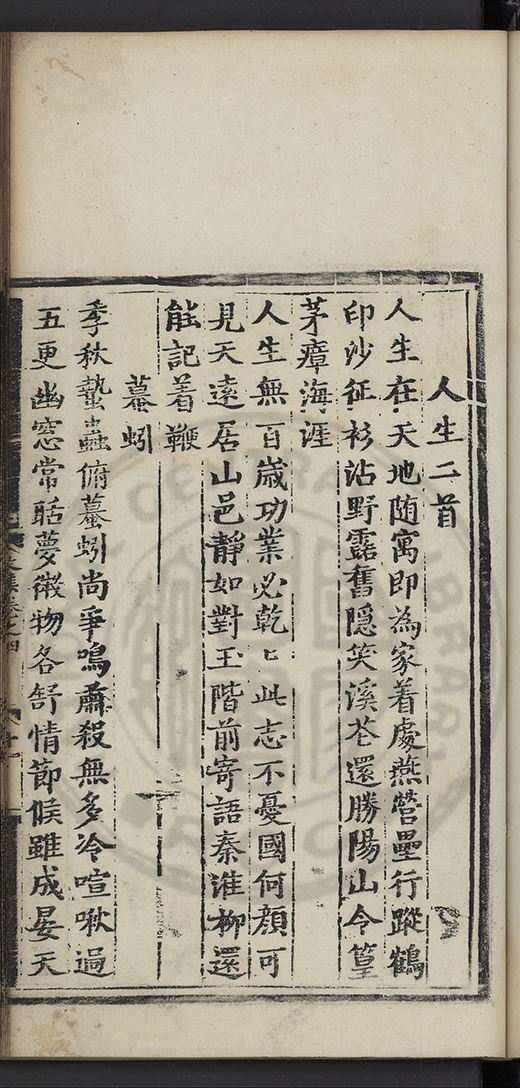 人生二首
人生在天地随寓即為家着處燕營壘行蹤鶴
印沙征衫沾野露舊隱笑溪花還勝陽山令篁
茅瘴海涯
人生無百歲功業必乾乾此志不憂國何顔可
見天遠居山邑靜如對玉階前寄語秦淮柳還
能記着鞭
蟇蚓
季秋蟄蟲俯蟇蚓尚爭鳴肅殺無多冷喧啾過
五更幽窓常聒夢微物各舒情節候雖成晏天